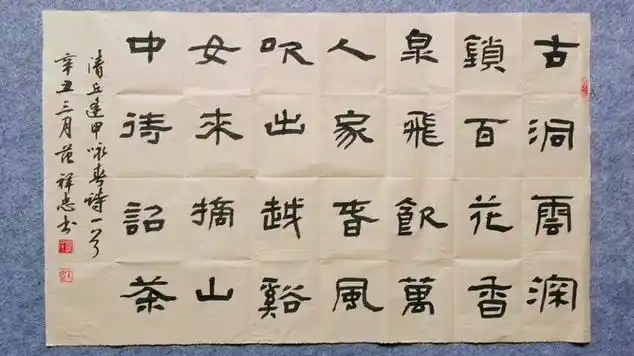 古洞雲深
鎖百花香
泉飛飲萬
人家春風
吹出越谿
女來摘山
中待詔茶
清丘逢甲咏春詩一首
辛丑三月范祥忠书